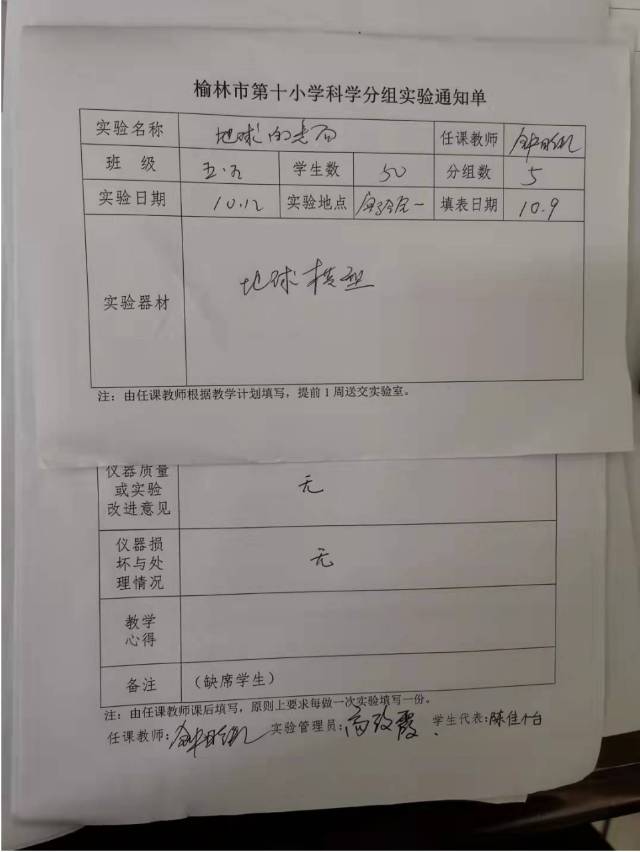 榆林市第十小学科学分组实验通知单
实验名称 地球的表面 任课教师
班 级 五.五 学生数 50 分组数 5
实验日期 10.12 实验地点 实验室一 填表日期 10.9
实验器材 地球模型
注：由任课教师根据教学计划填写，提前1周送交实验室。
仪器质量
或实验
改进意见 无
仪器损
坏与处
理情况 无
教学
心得
备注 （缺席学生）
注：由任课教师课后填写，原则上要求每做一次实验填写一份。
任课教师： 实验管理员：高改霞 学生代表：陈佳怡